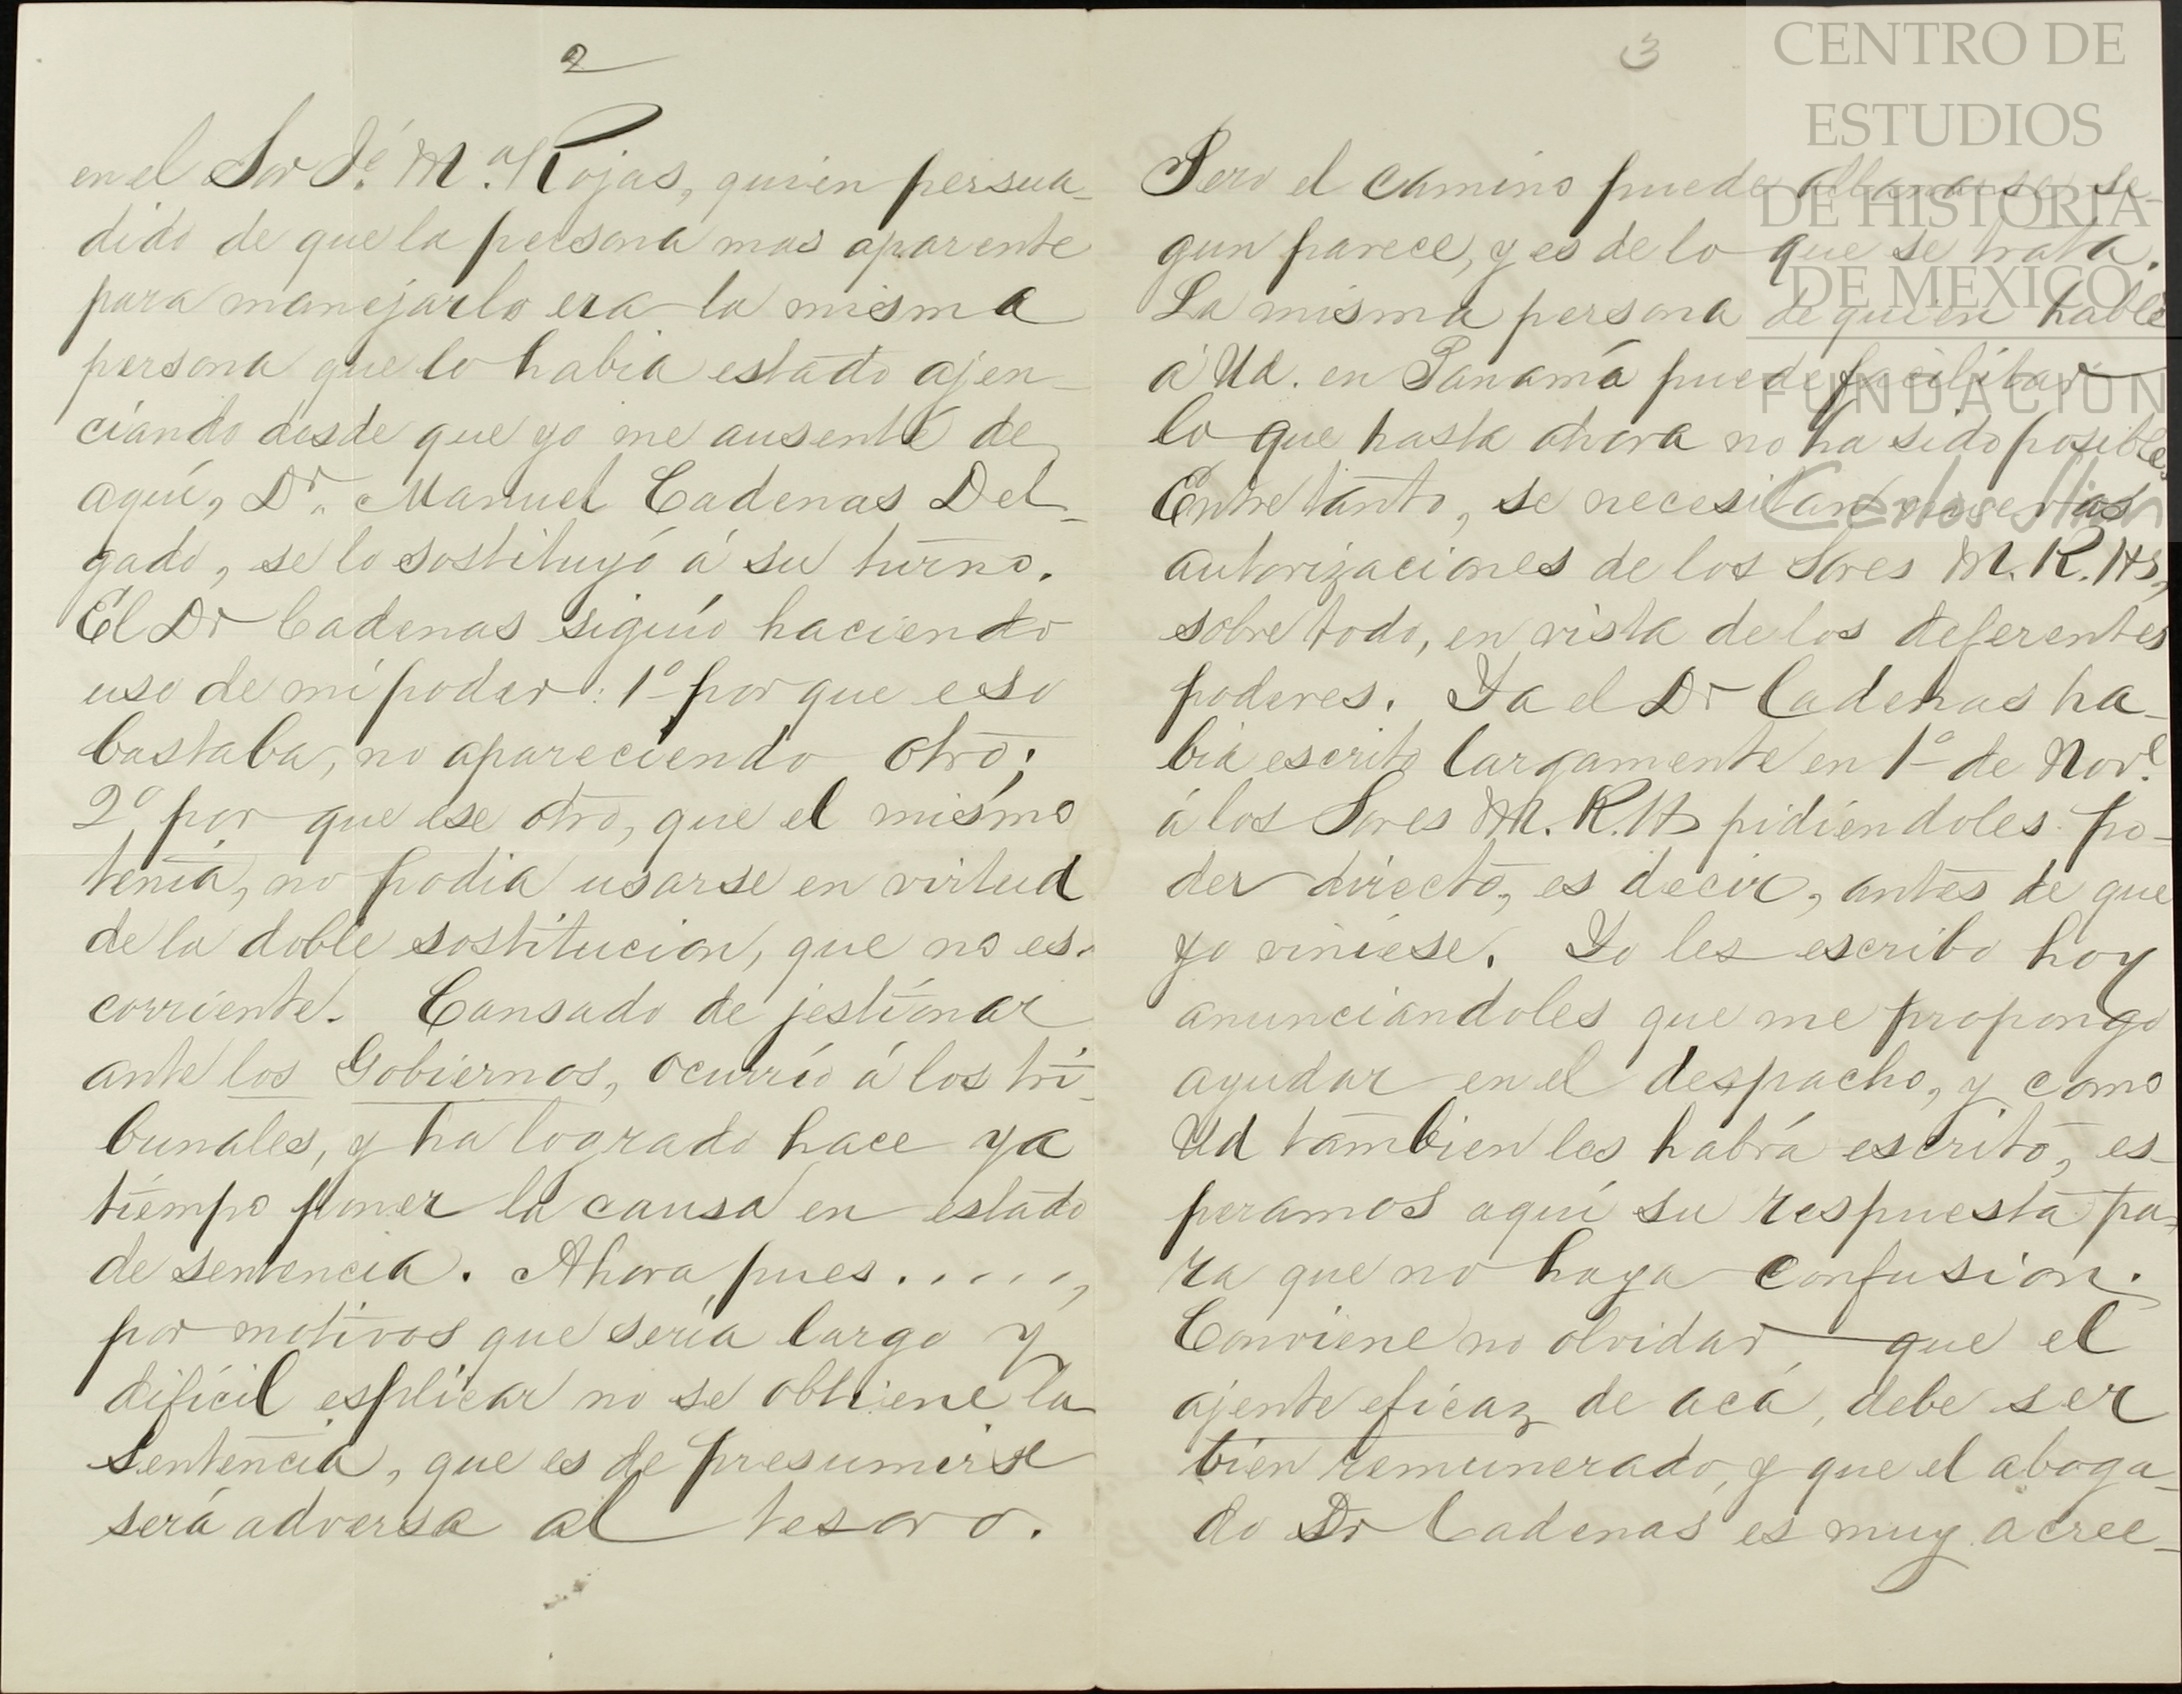 2
en el Sor Jé. Ma. Rojas, quien persua-
dido de que la persona mas aparente
para manejarlo era la misma
persona que lo habia estado ajen-
ciando desde que yo me ausenté de
aquí, Dr. Manuel Cadenas Del-
gado, se lo sostituyó á su turno.
El Dr Cadenas siguió haciendo
uso de mi poder: 1º por que eso
bastaba, no apareciendo otro;
2º por que ese otro, que el mismo
tenia, no podia usarse en virtud
de la doble sostitucion, que no es
corriente. Cansado de jestionar
ante los Gobiernos, ocurrió á los tri-
bunales, y ha logrado hace ya
tiempo poner la causa en estado
de sentencia. Ahora pues . . . . . ,
por motivos que sería largo y
difícil esplicar no se obtiene la
sentencia, que es de presumirse
será adversa al tesoro.
3
Pero el camino puede allanarse se-
gun parece, y es de lo que se trata.
La misma persona de quien hablé
á Ud. en Panamá puede facilitar
lo que hasta ahora no ha sido posible.
Entre tanto, se necesitan nuevas
autorizaciones de los Sores M. R. Hs,
sobre todo, en vista de los deferentes
poderes. Ya el Dr Cadenas ha-
bia escrito largamente en 1º de Nove.
á los Sores M. R. Hs pidiéndoles po-
der directo, es decir, antes de que
yo viniese. Yo les escribo hoy
anunciandoles que me propongo
ayudar en el despacho, y como
Ud tambien les habrá escrito, es-
peramos aquí su respuesta pa-
ra que no haya confusion.
Conviene no olvidar que el
ajente eficaz de acá, debe ser
bien remunerado, y que el aboga-
do Dr Cadenas es muy acree-
CENTRO DE
ESTUDIOS
DE HISTORIA
DE MEXICO
FUNDACION
Carlos Slim